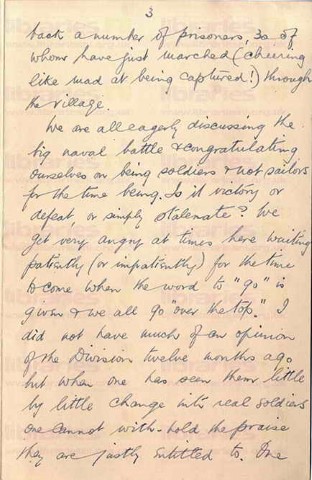 3
back a number of prisoners, 30 of
whom have just marched (cheering
like mad at being captured!) through
the village.
We are all eagerly discussing the
big naval battle & congratulating
ourselves on being soldiers & not sailors
for the time being. Is it victory or
defeat, or simply stalemate? We
get very angry at times here waiting
patiently (or impatiently) for the time
to come when the word to "go" is
given & we all go "over the top." I
did not have much of an opinion
of the Division twelve months ago
but when one has seen them little
by little change into real soldiers
one cannot with-hold the praise
they are justly intitled to. One